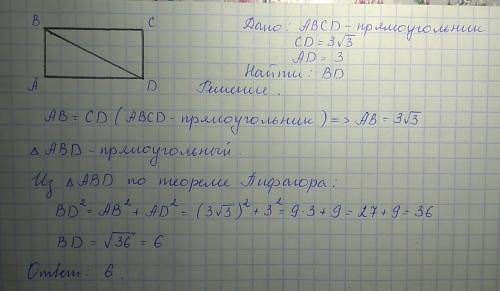 B C
A D
Дано: ABCD - прямоугольник
CD = 3√3
AD = 3
Найти: BD
Решение.
AB = CD (ABCD - прямоугольник) => AB = 3√3
△ABD - прямоугольный.
Из △ABD по теореме Пифагора:
BD² = AB² + AD² = (3√3)² + 3² = 9·3 + 9 = 27 + 9 = 36
BD = √36 = 6
Ответ: 6.